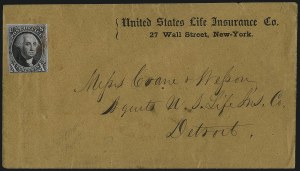 United States Life Insurance Co.
27 Wall Street, New-York.
Messrs Crane & Wesson
Agents U. S. Life Ins. Co
Detroit.